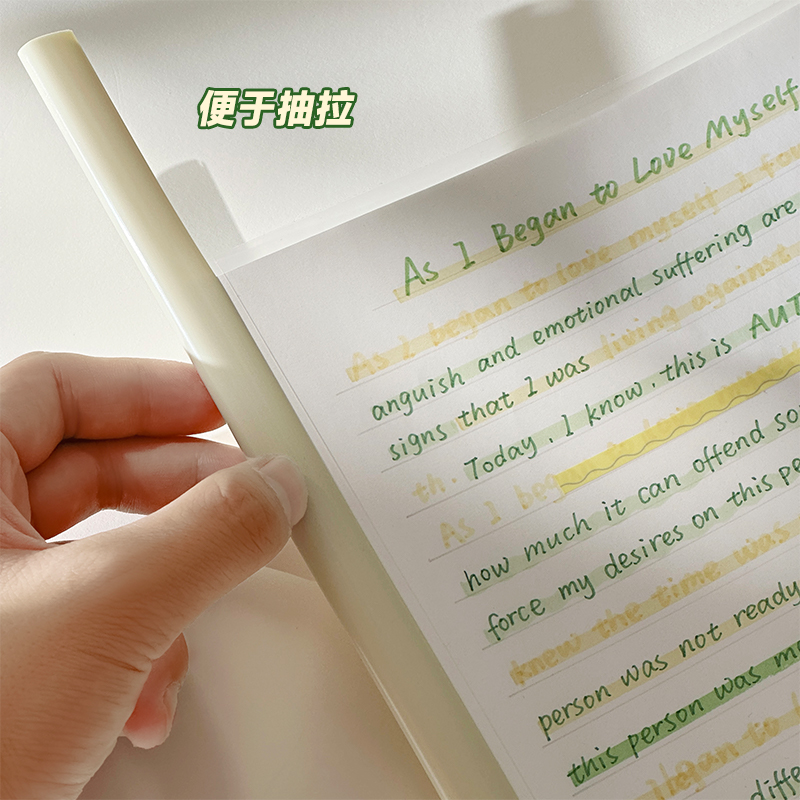 便于抽拉
As I Began to Love Myself
As I began to love myself I fou
anguish and emotional suffering are
signs that I was living against
th. Today, I know, this is AUT
As I beg
how much it can offend so
force my desires on this pe
knew the time was
person was not ready
this person was m
I began to
diffe